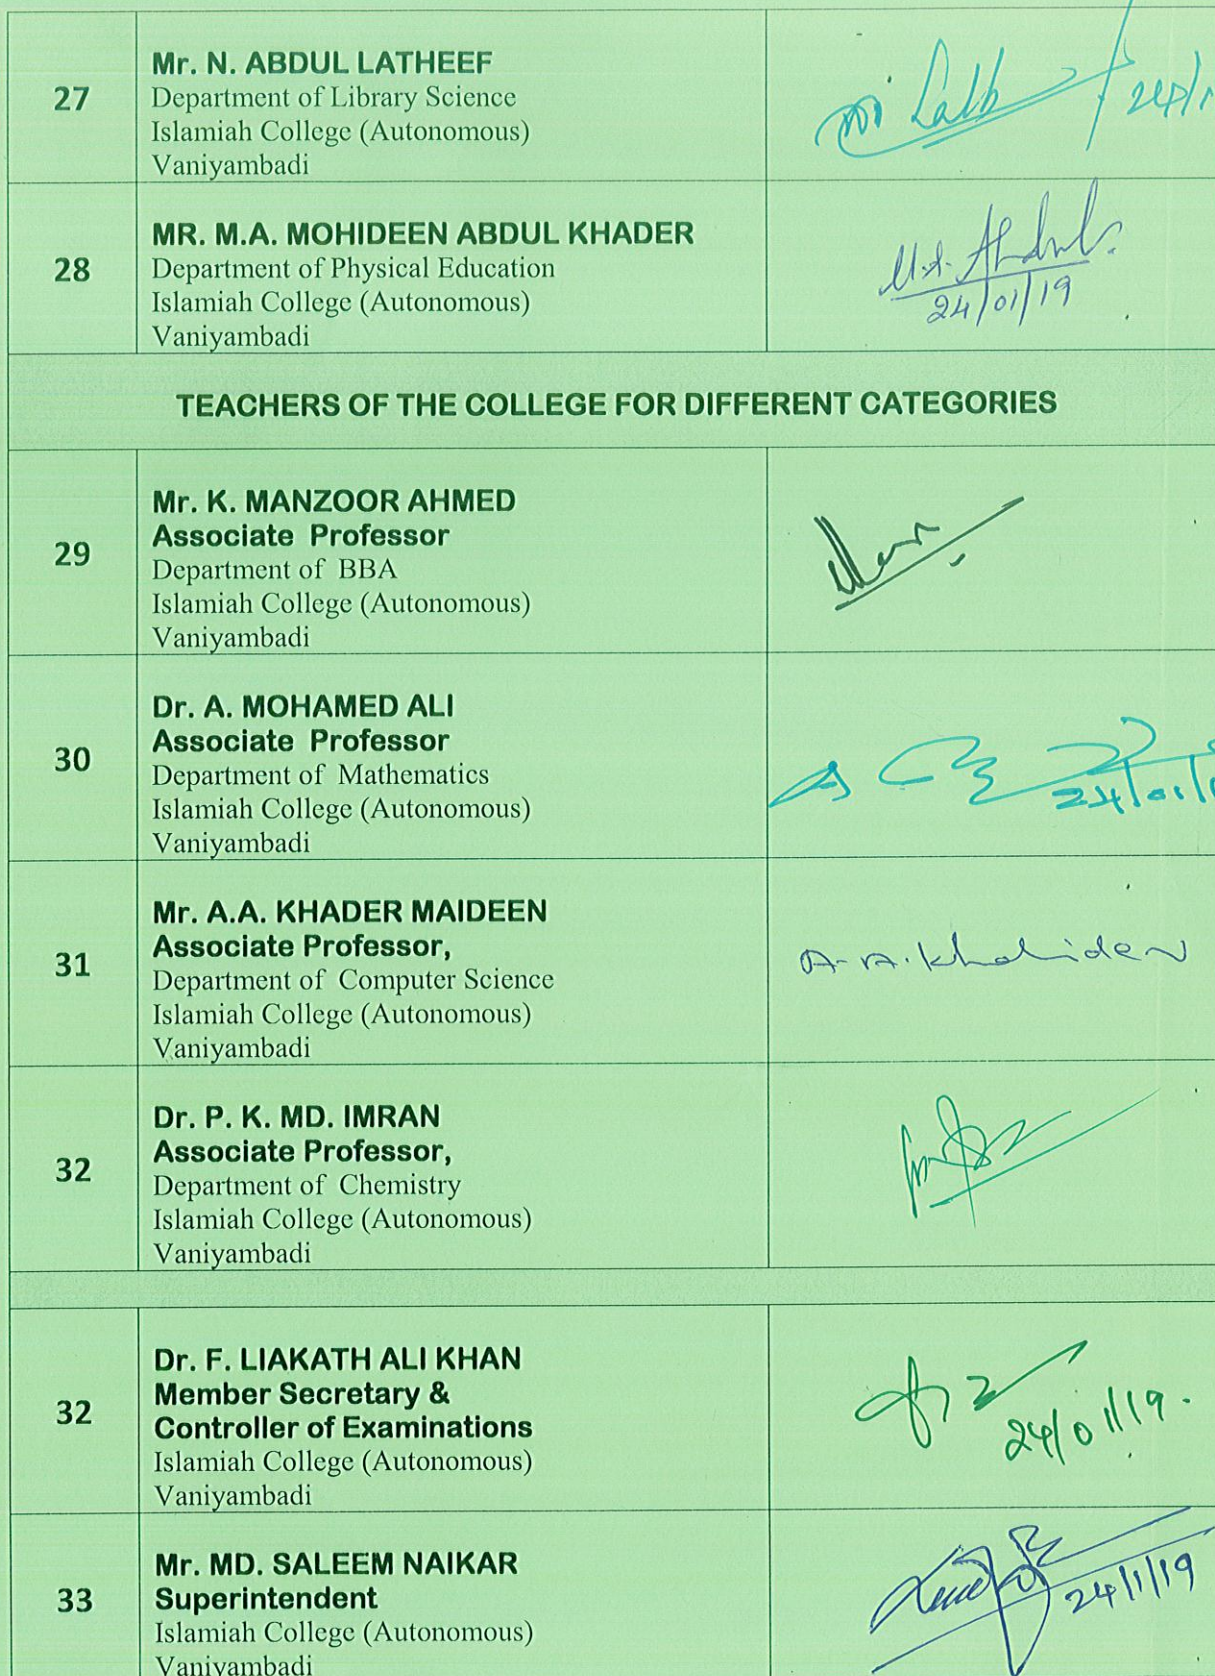 27
Mr. N. ABDUL LATHEEF
Department of Library Science
Islamiah College (Autonomous)
Vaniyambadi
28
MR. M.A. MOHIDEEN ABDUL KHADER
Department of Physical Education
Islamiah College (Autonomous)
Vaniyambadi
24/01/19
TEACHERS OF THE COLLEGE FOR DIFFERENT CATEGORIES
29
Mr. K. MANZOOR AHMED
Associate Professor
Department of BBA
Islamiah College (Autonomous)
Vaniyambadi
30
Dr. A. MOHAMED ALI
Associate Professor
Department of Mathematics
Islamiah College (Autonomous)
Vaniyambadi
24/01/1
31
Mr. A.A. KHADER MAIDEEN
Associate Professor,
Department of Computer Science
Islamiah College (Autonomous)
Vaniyambadi
32
Dr. P. K. MD. IMRAN
Associate Professor,
Department of Chemistry
Islamiah College (Autonomous)
Vaniyambadi
32
Dr. F. LIAKATH ALI KHAN
Member Secretary &
Controller of Examinations
Islamiah College (Autonomous)
Vaniyambadi
24/01/19.
33
Mr. MD. SALEEM NAIKAR
Superintendent
Islamiah College (Autonomous)
Vaniyambadi
24/1/19